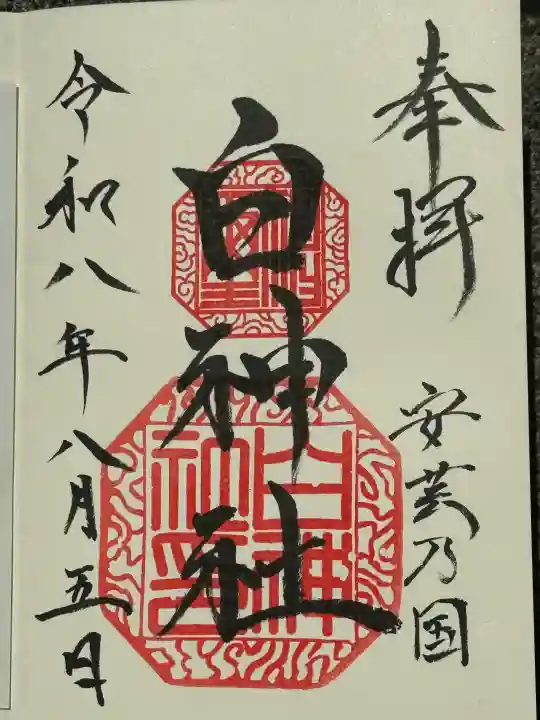 奉拝
安芸乃国
白神社
令和八年八月五日